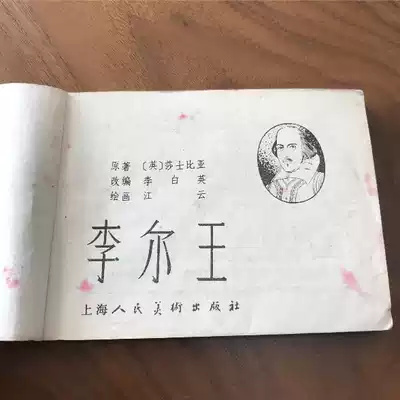 原著 〔英〕莎士比亚
改编 李白英
绘画 江云
李尔王
上海人民美術出版社